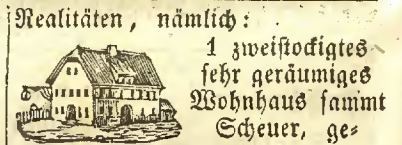 Realitäten, nämlich:
1 zweistockigtes
sehr geräumiges
Wohnhaus sammt
Scheuer, ge=